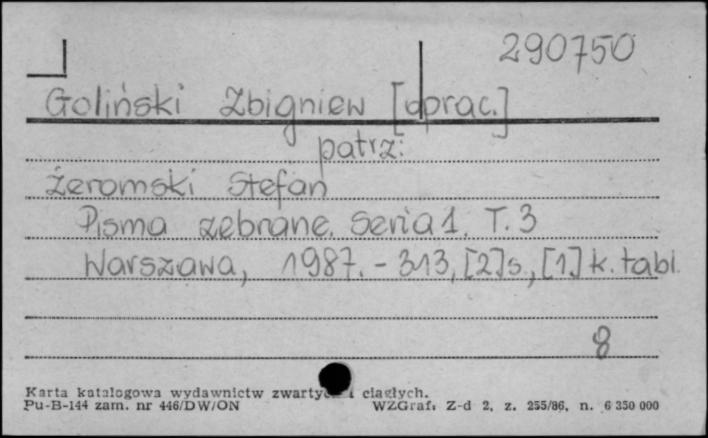 290750
Goliński Zbigniew [oprac.]
patrz:
Żeromski Stefan
Pisma zebrane. Seria 1, T. 3
Warszawa, 1987. - 313, [2] s., [1] k. tabl.
8
Karta katalogowa wydawnictw zwartych i ciągłych.
Pu-B-144 zam. nr 446/DW/ON WZGraf. Z-d 2, z. 255/86, n. 6 350 000